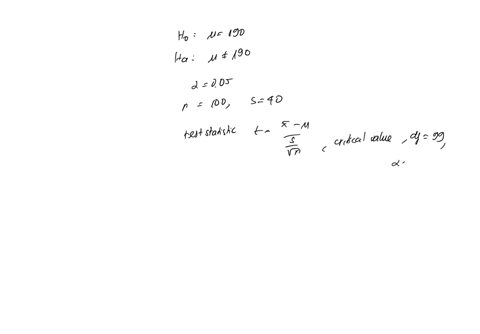 H₀: μ = 190
Ha: μ ≠ 190
α = 0.05
n = 100, s = 40
test statistic t = (x̄ - μ) / (s/√n), critical value, df = 99,
α =